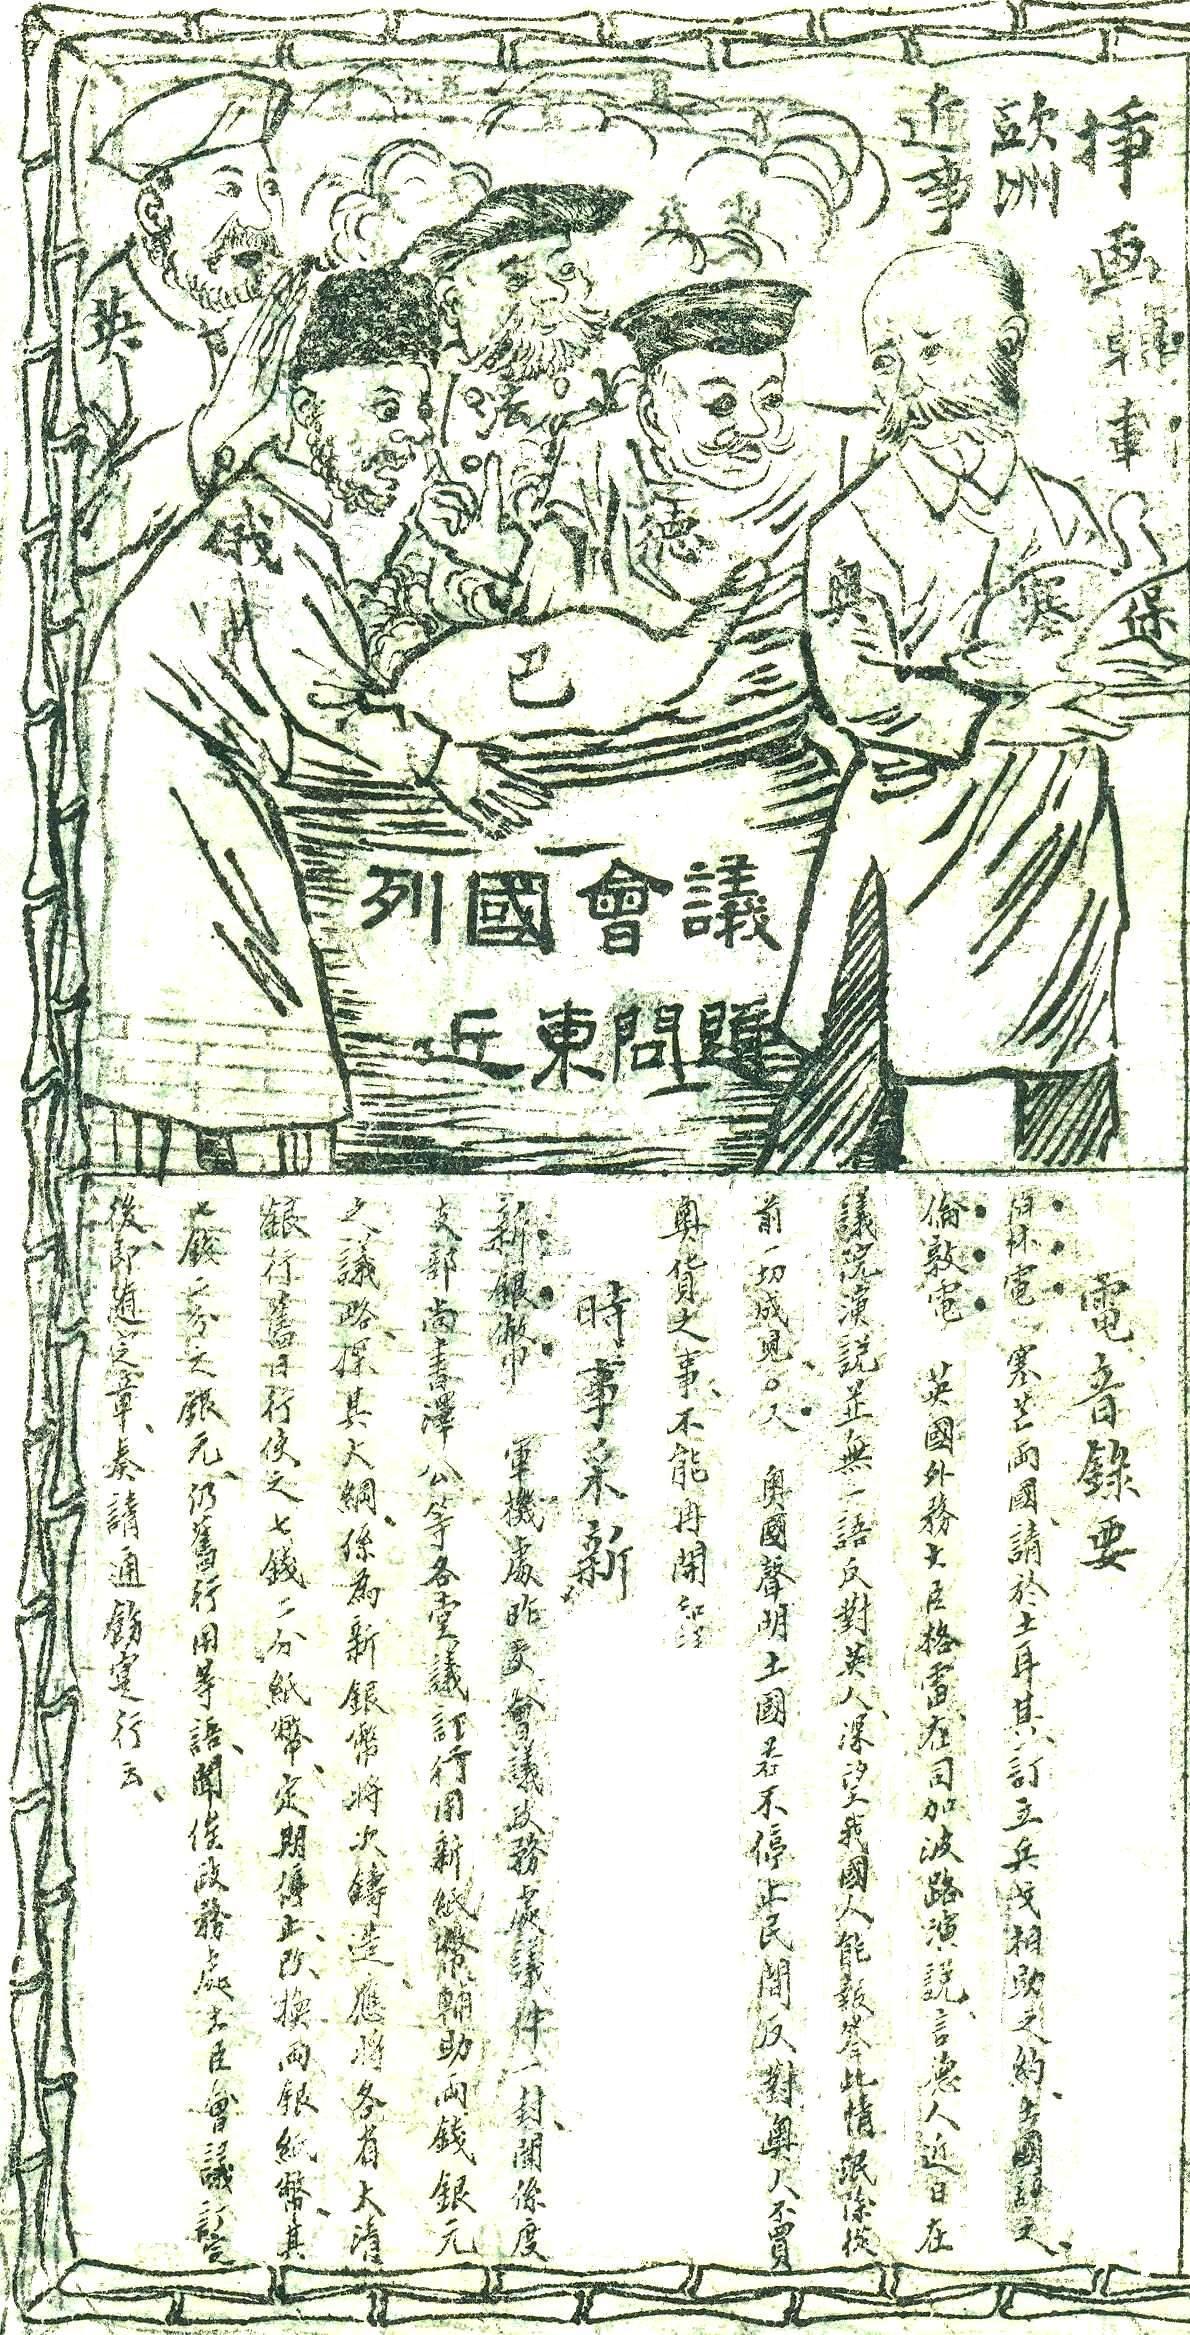 插画
歐洲
近事
英
俄
法
德
奧
塞
保
巴
列國會議
近東問題
電音錄要
柏林電 塞芒兩國請於土耳其訂立兵戈相助之約土國
倫敦電 英國外務大臣格雷在司加波路演說言德人近日在
議院演說並無一語反對英人深望我國人能報答此情泯除從
前一切成見○又 奧國聲明土國若不停止民間反對奧人不買
奧貨之事不能再開
時事采新
新銀幣 軍機處昨交會議政務處議件一封聞係度
支部尚書澤公等各堂議訂行用新紙幣輔助兩錢銀元
之議略探其大綱係為新銀幣將次鑄造應將各省大清
銀行舊日行使之七錢二分紙幣定期停止改換兩銀紙幣其
七錢二分之銀元仍舊行用等語聞俟政務處大臣會議訂完
後即道定章奏請通飭寔行云